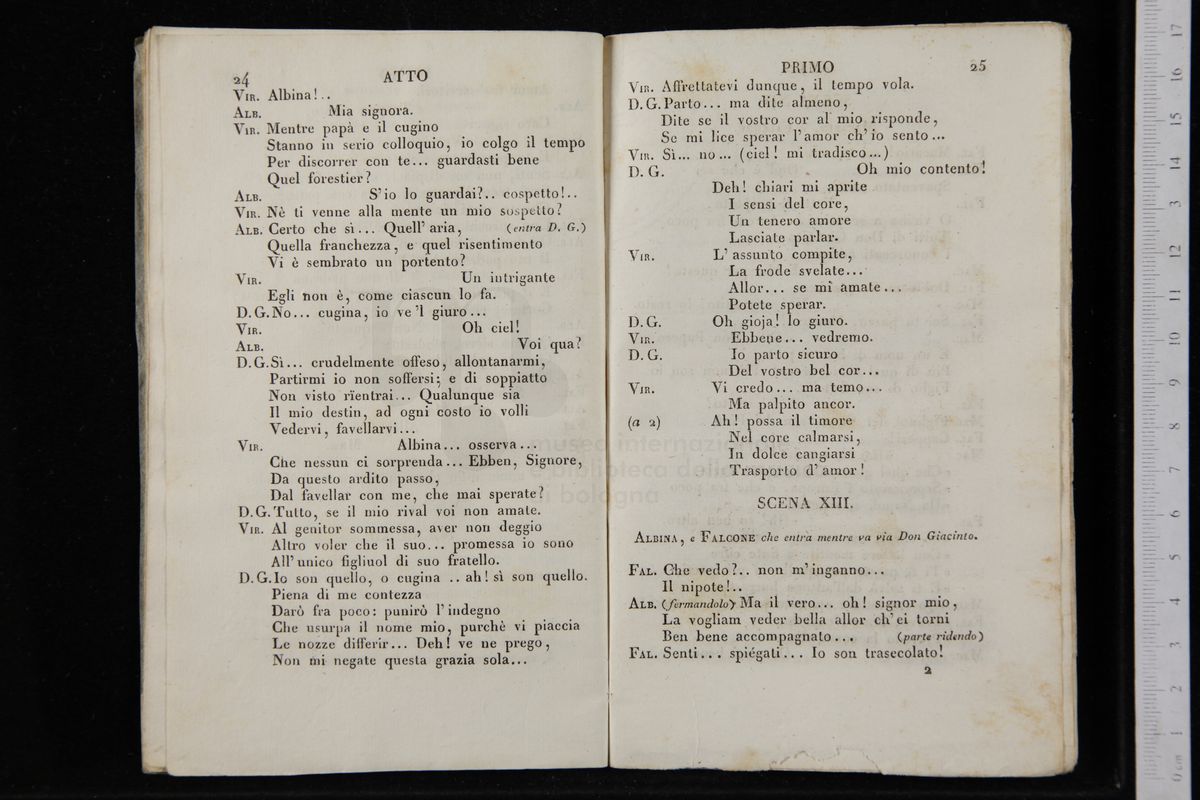 24 ATTO
VIR. Albina!..
ALB. Mia signora.
VIR. Mentre papà e il cugino
Stanno in serio colloquio, io colgo il tempo
Per discorrer con te... guardasti bene
Quel forestier?
ALB. S'io lo guardai?.. cospetto!..
VIR. Nè ti venne alla mente un mio sospetto?
ALB. Certo che sì... Quell' aria, (entra D. G.)
Quella franchezza, e quel risentimento
Vi è sembrato un portento?
VIR. Un intrigante
Egli non è, come ciascun lo fa.
D.G. No... cugina, io ve 'l giuro...
VIR. Oh ciel!
ALB. Voi qua?
D.G. Sì... crudelmente offeso, allontanarmi,
Partirmi io non soffersi; e di soppiatto
Non visto rientrai... Qualunque sia
Il mio destin, ad ogni costo io volli
Vedervi, favellarvi...
VIR. Albina... osserva...
Che nessun ci sorprenda... Ebben, Signore,
Da questo ardito passo,
Dal favellar con me, che mai sperate?
D.G. Tutto, se il mio rival voi non amate.
VIR. Al genitor sommessa, aver non deggio
Altro voler che il suo... promessa io sono
All' unico figliuol di suo fratello.
D.G. Io son quello, o cugina .. ah! sì son quello.
Piena di me contezza
Darò fra poco: punirò l' indegno
Che usurpa il nome mio, purchè vi piaccia
Le nozze differir... Deh! ve ne prego,
Non mi negate questa grazia sola...
PRIMO 25
VIR. Affrettatevi dunque, il tempo vola.
D.G. Parto... ma dite almeno,
Dite se il vostro cor al mio risponde,
Se mi lice sperar l' amor ch' io sento...
VIR. Sì... no... (ciel! mi tradisco...)
D. G. Oh mio contento!
Deh! chiari mi aprite
I sensi del core,
Un tenero amore
Lasciate parlar.
VIR. L' assunto compite,
La frode svelate...
Allor... se mi amate...
Potete sperar.
D. G. Oh gioja! Io giuro.
VIR. Ebbene... vedremo.
D. G. Io parto sicuro
Del vostro bel cor...
VIR. Vi credo... ma temo...
Ma palpito ancor.
(a 2) Ah! possa il timore
Nel core calmarsi,
In dolce cangiarsi
Trasporto d' amor!
SCENA XIII.
ALBINA, e FALCONE che entra mentre va via Don Giacinto.
FAL. Che vedo?.. non m' inganno...
Il nipote!..
ALB. (fermandolo) Ma il vero... oh! signor mio,
La vogliam veder bella allor ch' ei torni
Ben bene accompagnato... (parte ridendo)
FAL. Senti... spiégati... Io son trasecolato!
2